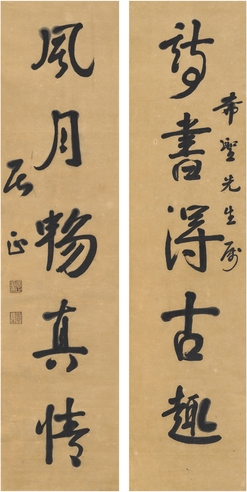 詩書得古趣
希聖先生属
風月暢真情
居正